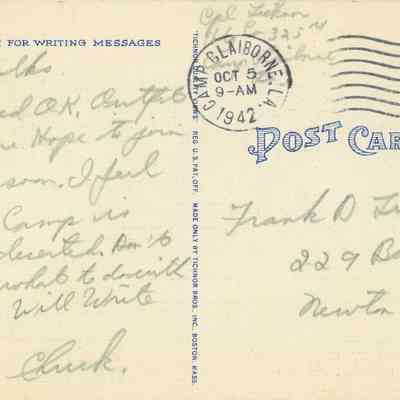 FOR WRITING MESSAGES
lks
ed O.K. Outfit
re. Hope to join
soon. I feel
Camp is
deserted. Don't
what to do with
Will Write
Chuck.
TICHNOR QUALITY VIEWS REG. U.S. PAT. OFF. MADE ONLY BY TICHNOR BROS. INC. BOSTON, MASS.
Cpl
325
Camp Claiborne
CAMP CLAIBORNE, LA.
OCT 5
9-AM
1942
POST CAR
Frank D
229
Newton